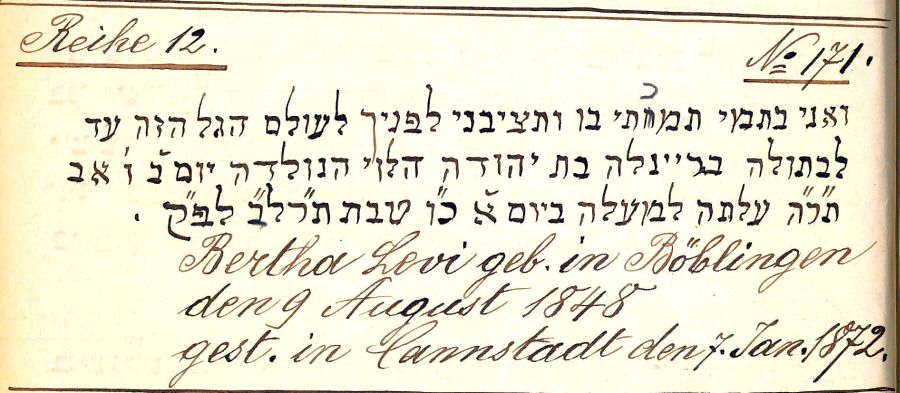 Reihe 12. № 171.
כ
ואני בתמי תמחתי בו ותציבני לפניך לעולם הגל הזה עד
לבתולה בריינלה בת יהודה הלוי הנולדה יום ב' ו' אב
תר"ה עלתה למעלה ביום א' כ"ו טבת תרל"ב לפ"ק .
Bertha Levi geb. in Böblingen
den 9 August 1848
gest. in Cannstadt den 7. Jan. 1872.